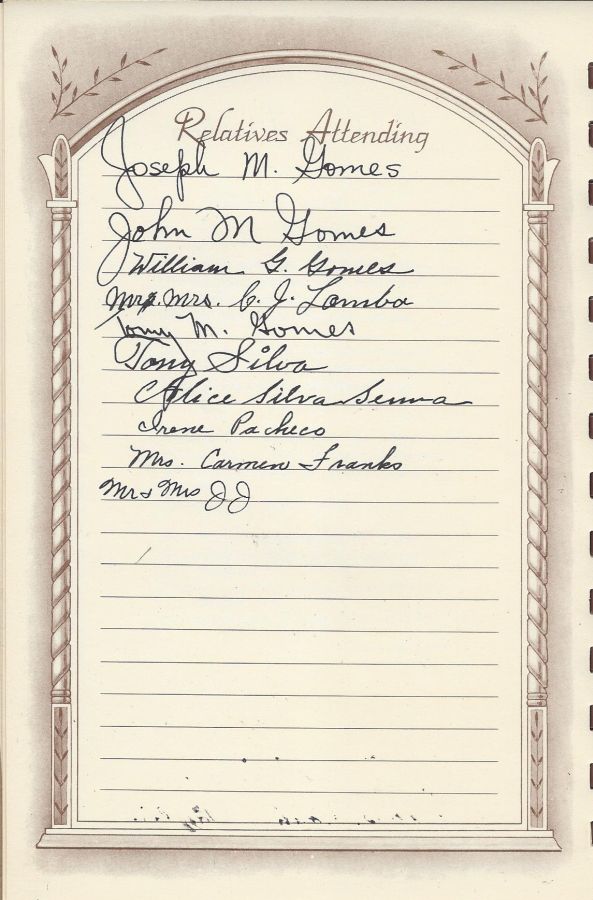 Relatives Attending
Joseph M. Gomes
John M Gomes
William G. Gomes
Mr. Mrs. C. J. Lamba
Tony M. Gomes
Tony Silva
Alice Silva Senna
Irene Pacheco
Mrs. Carmen Franks
Mr & Mrs JJ